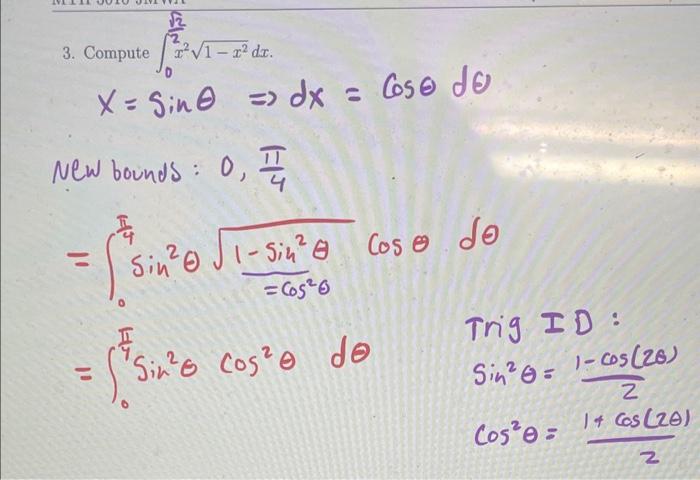 3. Compute ∫₀^(√2/2) x²√(1 − x²) dx.
x = Sinθ => dx = Cosθ dθ
New bounds : 0, π/4
= ∫₀^(π/4) Sin²θ √(1 - Sin²θ) Cosθ dθ
= Cos²θ
= ∫₀^(π/4) Sin²θ Cos²θ dθ
Trig ID :
Sin²θ = (1 - cos(2θ))/2
Cos²θ = (1 + Cos(2θ))/2